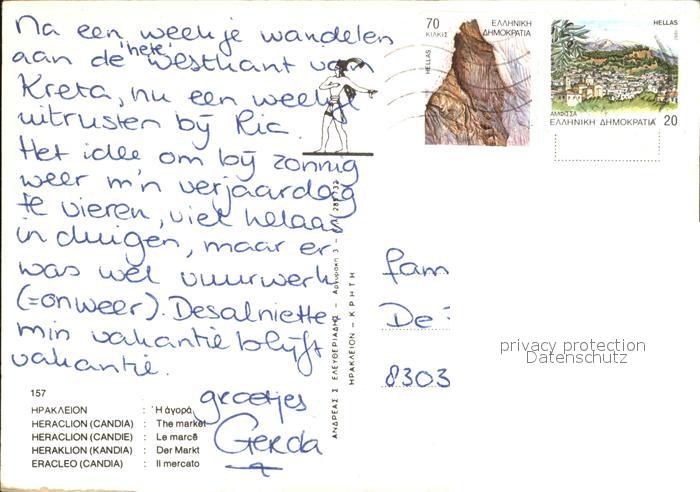 Na een weekje wandelen
aan de 'hete' Westkant van
Kreta, nu een weekje
uitrusten bij Ric.
Het idee om bij zonnig
weer m'n verjaardag
te vieren, viel helaas
in duigen, maar er
was wel vuurwerk
(=onweer). Desalniette
min vakantie blijft
vakantie.
groetjes
Gerda
157
ΗΡΑΚΛΕΙΟΝ : Ἡ ἀγορά
HERACLION (CANDIA) : The market
HERACLION (CANDIE) : Le marcē
HERAKLION (KANDIA) : Der Markt
ERACLEO (CANDIA) : Il mercato
ΑΝΔΡΕΑΣ Σ. ΕΛΕΥΘΕΡΙΑΔΗΣ -
ΗΡΑΚΛΕΙΟΝ - ΚΡΗΤΗ
70
ΚΙΛΚΙΣ
ΕΛΛΗΝΙΚΗ
ΔΗΜΟΚΡΑΤΙΑ
HELLAS
HELLAS
ΑΜΦΙΣΣΑ
20
ΕΛΛΗΝΙΚΗ ΔΗΜΟΚΡΑΤΙΑ
fam
De
8303
privacy protection
Datenschutz